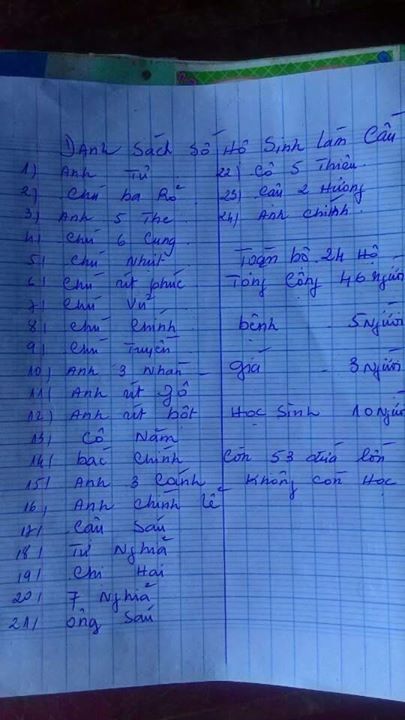 Danh Sách Số Hộ Sinh làm Cầu
1) Anh Tư
2) Chú ba Rổ
3) Anh 5 The
4) Chú 6 Cung
5) Chú Nhứt
6) Chú út phúc
7) Chú Vũ
8) Chú Chính
9) Chú Truyền
10) Anh 3 Nhan
11) Anh út gồ
12) Anh út bột
13) Cô Năm
14) bác Chính
15) Anh 3 Cảnh
16) Anh chính lê
17) Cậu Sáu
18) Tư Nghiã
19) Chi Hai
20) 7 Nghiã
21) ông Sáu
22) Cô 5 Thiêu
23) Cậu 2 Hương
24) Anh Chính
Toàn bộ 24 Hộ
Tổng Cộng 46 người
bệnh 5 Người
giá 3 Người
Học Sinh 10 Người
Còn 53 đứa lớn
Không còn Học